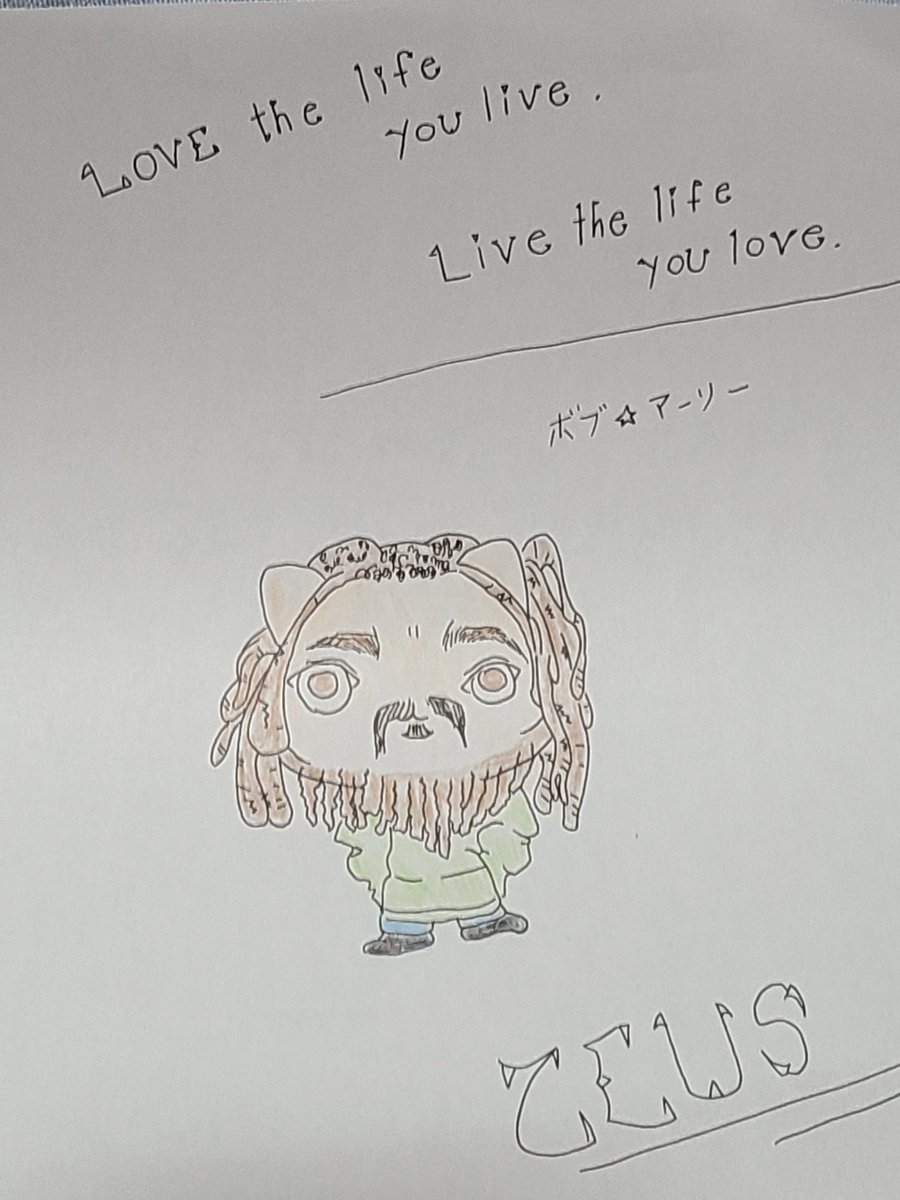 LOVE the life
you live.
Live the life
you love.
ボブ☆アーリー
ZEUS